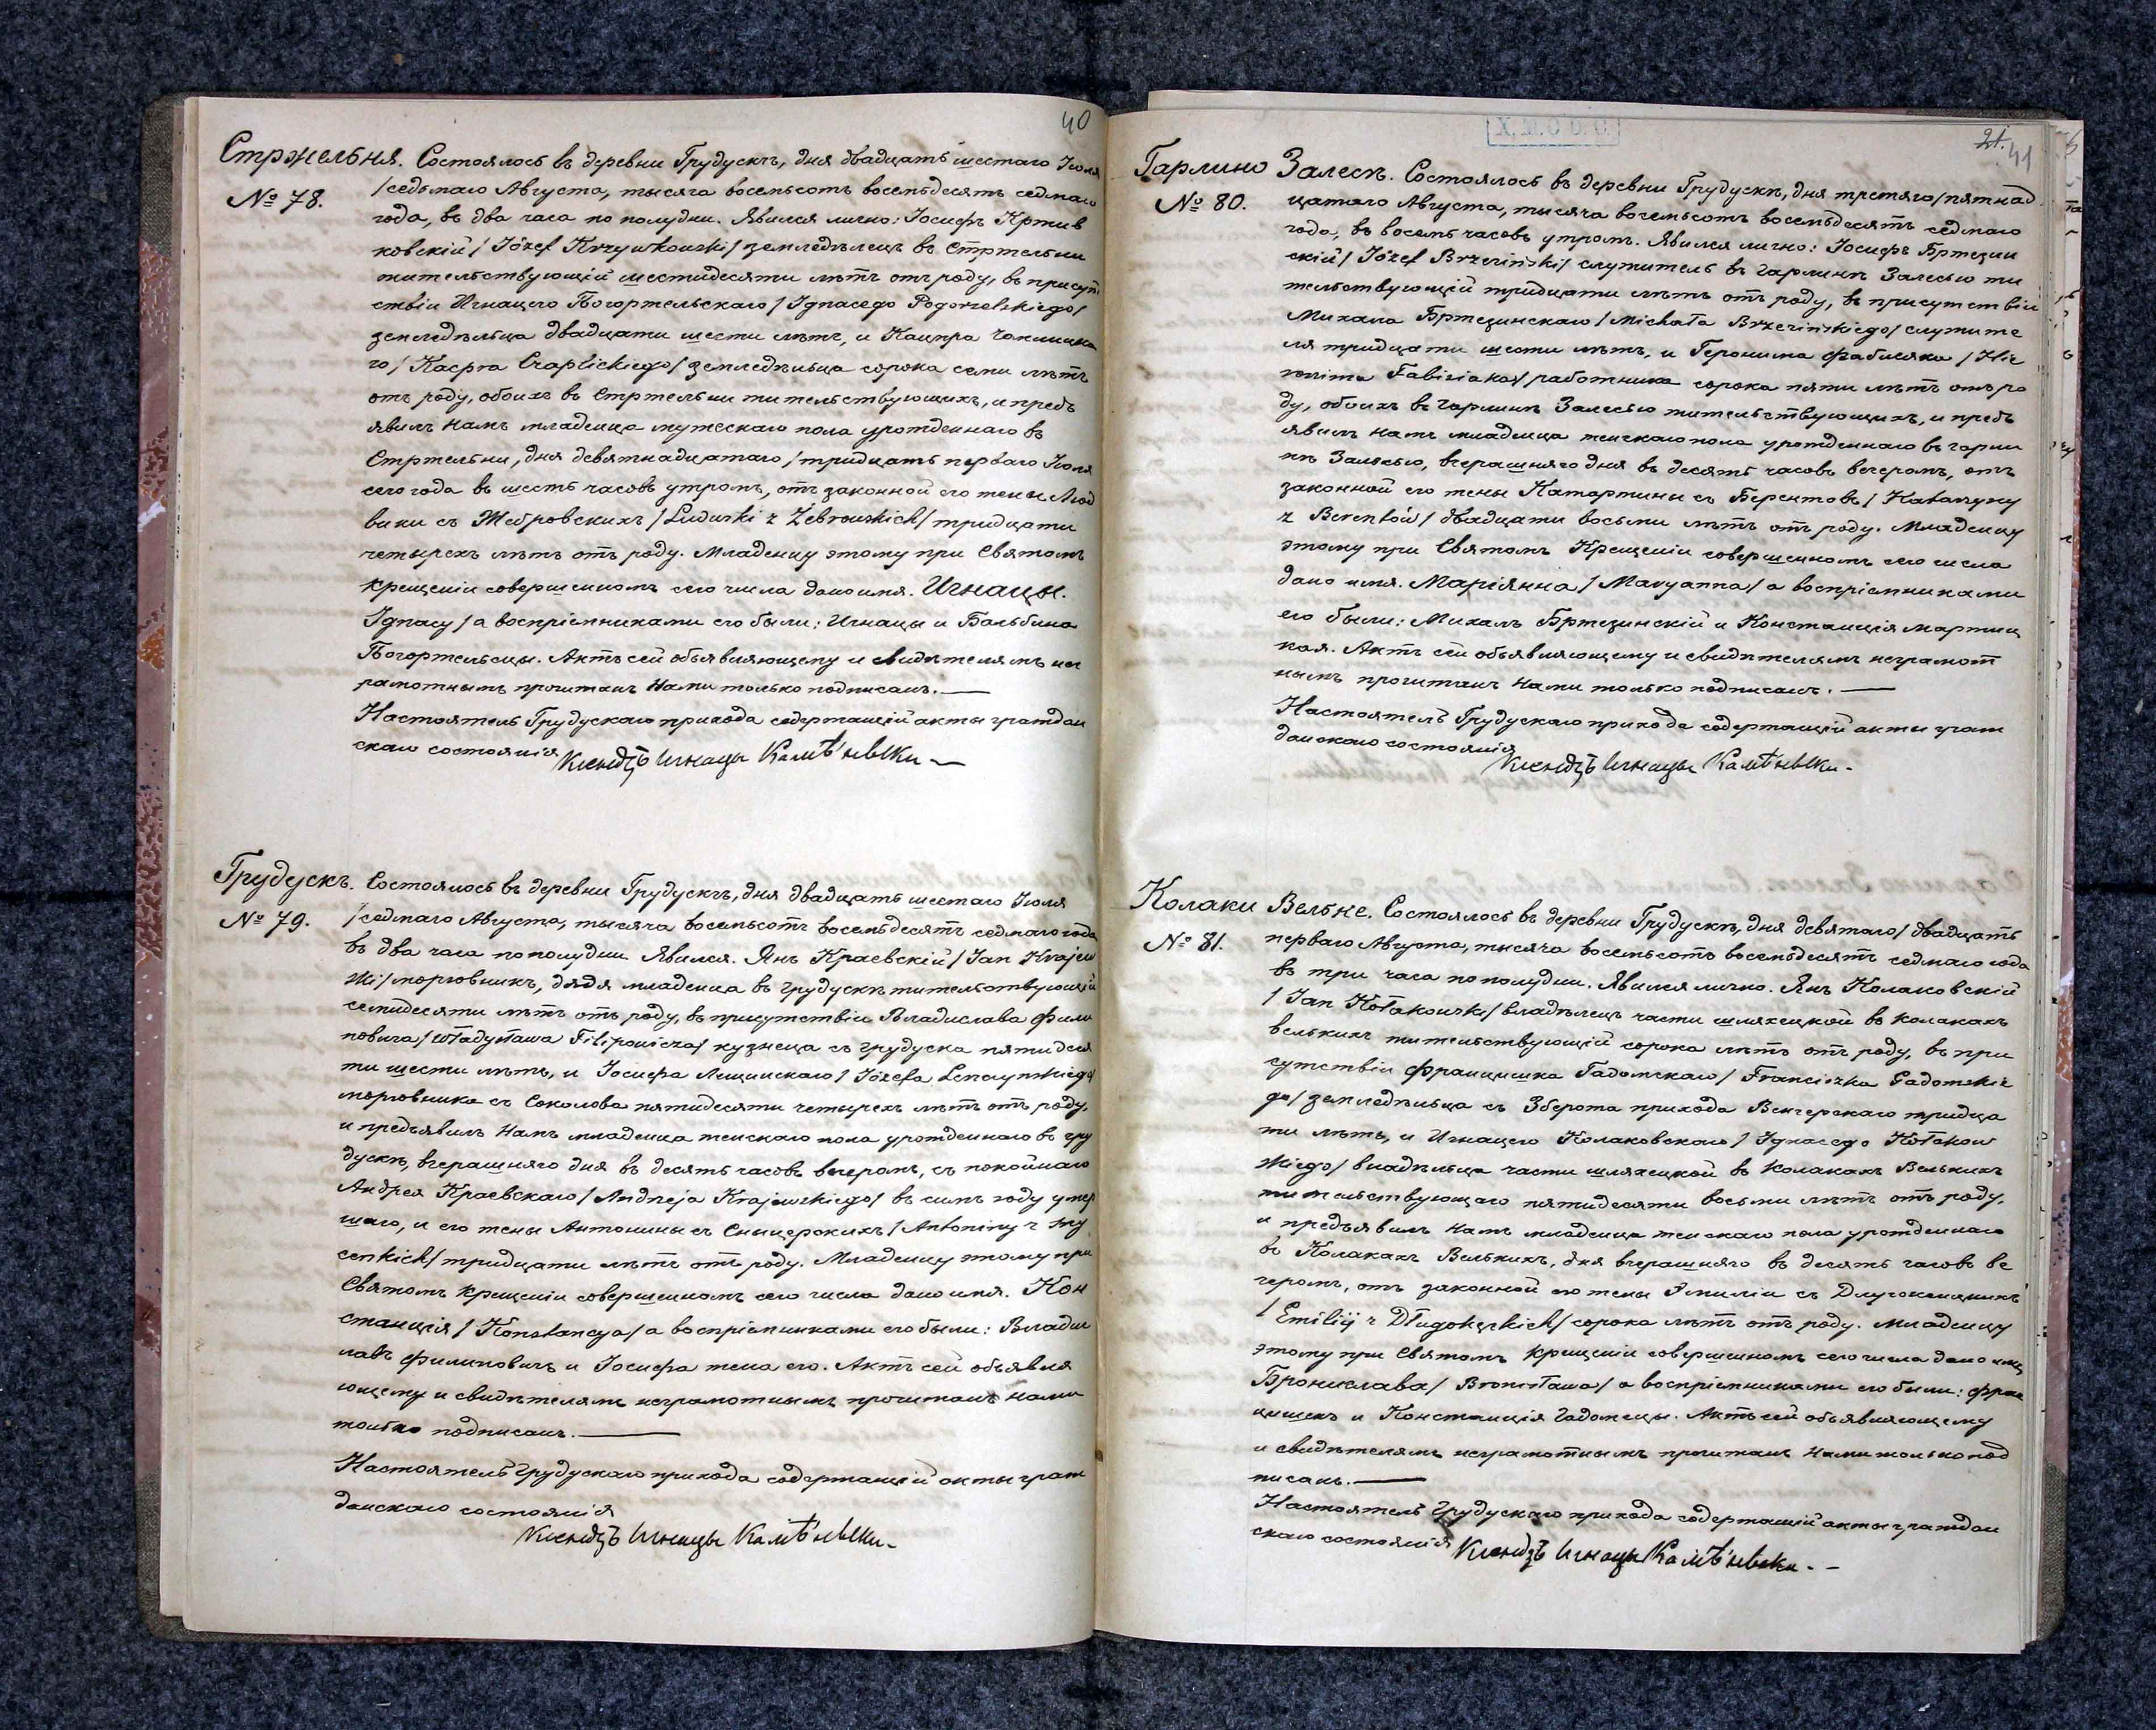 40
Стржельня. Состоялось въ деревни Грудускъ, дня двадцать шестаго Іюля
№ 78. /седьмаго Августа, тысяча восемьсотъ восемьдесятъ седмаго
года, въ два часа по полудни. Явился лично: Іосифъ Кржив
ковскій / Józef Krzywkowski / земледѣлецъ въ Стржельни
жительствующій шестидесяти лѣтъ отъ роду, въ присут
ствіи Игнацего Погоржельскаго / Ignacego Pogorzelskiego /
земледѣльца двадцати шести лѣтъ, и Кацпра Чаплицка
го / Kacpra Czaplickiego / земледѣльца сорока семи лѣтъ
отъ роду, обоихъ въ Стржельни жительствующихъ, и предъ
явилъ намъ младенца мужескаго пола урожденнаго въ
Стржельни, дня девятнадцатаго / тридцать перваго Іюля
сего года въ шесть часовъ утромъ, отъ законной его жены Люд
вики съ Жебровскихъ / Ludwiki z Żebrowskich / тридцати
четырехъ лѣтъ отъ роду. Младенцу этому при Святомъ
крещеніи совершенномъ сего числа дано имя. Игнацы.
Ignacy / а воспріемниками его были: Игнацы и Бальбина
Погоржельсцы. Актъ сей объявляющему и свидѣтелямъ нег
рамотнымъ прочитанъ Нами только подписанъ. —
Настоятель Грудускаго прихода содержащій акты граждан
скаго состоянія Ксендзъ Игнацы Камѣньски —
Грудускъ. Состоялось въ деревни Грудускъ, дня двадцать шестаго Іюля
№ 79. /седмаго Августа, тысяча восемьсотъ восемьдесятъ седмаго года
въ два часа по полудни Явился. Янъ Краевскій / Jan Krajew
ski / торговникъ, дядя младенца въ Грудускѣ жительствующій
семидесяти лѣтъ отъ роду, въ присутствіи Владислава Фили
повича / Władysława Filipowicza / кузнеца съ Грудуска пятидеся
ти шести лѣтъ, и Іосифа Лещинскаго / Józefa Lenczynskiego /
торговника съ Соколова пятидесяти четырехъ лѣтъ отъ роду,
и предъявилъ Намъ младенца женскаго пола урожденнаго въ Гру
дускѣ, вчерашняго дня въ десять часовъ вечеромъ, съ покойнаго
Андрея Краевскаго / Andrzeja Krajewskiego / въ симъ году умер
шаго, и его жены Антонины съ Сницерскихъ / Antoniny z Sny
cerskich / тридцати лѣтъ отъ роду. Младенцу этому при
Святомъ крещеніи совершенномъ сего числа дано имя. Кон
станція / Konstancya / а воспріемниками его были: Владис
лавъ Филиповичъ и Іосифа жена его. Актъ сей объявля
ющему и свидѣтелямъ неграмотнымъ прочитанъ Нами
только подписанъ. —
Настоятель Грудускаго прихода содержащій акты граж
данскаго состоянія
Ксендзъ Игнацы Камѣньски —
X. M. C. D. G.
21.
41
Гарлино Залеск. Состоялось въ деревни Грудускъ, дня третяго / пятнад
№ 80. цатаго Августа, тысяча восемьсотъ восемьдесятъ седмаго
года, въ восемь часовъ утромъ. Явился лично: Іосифъ Бржезин
скій / Józef Brzeziński / служитель въ Гарлинѣ Залесью жи
тельствующій тридцати лѣтъ отъ роду, въ присутствіи
Михала Бржезинскаго / Michała Brzezińskiego / служите
ля тридцати шести лѣтъ, и Геронима Фабисяка / Hie
ronima Fabisiaka / работника сорока пяти лѣтъ отъ ро
ду, обоихъ въ Гарлинѣ Залесью жительствующихъ, и предъ
явилъ намъ младенца женскаго пола урожденнаго въ Гарли
нѣ Залесью, вчерашняго дня въ десять часовъ вечеромъ, отъ
законной его жены Катаржины съ Берентовъ / Katarzyny
z Berentów / двадцати восьми лѣтъ отъ роду. Младенцу
этому при Святомъ Крещеніи совершенномъ сего числа
дано имя. Маріянна / Maryanna / а воспріемниками
его были: Михалъ Бржезинскій и Констанція Мартиц
кая. Актъ сей объявляющему и свидѣтелямъ неграмот
нымъ прочитанъ Нами только подписанъ. —
Настоятель Грудускаго прихода содержащій акты граж
данскаго состоянія
Ксендзъ Игнацы Камѣньски —
Колаки Вельке. Состоялось въ деревни Грудускъ, дня девятаго / двадцать
№ 81. перваго Августа, тысяча восемьсотъ восемьдесятъ седмаго года
въ три часа по полудни. Явился лично. Янъ Колаковскій
/ Jan Kołakowski / владѣлецъ части шляхецкой въ Колакахъ
Велькихъ жительствующій сорока лѣтъ отъ роду, въ при
сутствіи Францишка Гадомскаго / Franciszka Gadomskie
go / земледѣльца съ Зберожа прихода Венгерскаго тридца
ти лѣтъ, и Игнацего Колаковскаго / Ignacego Kołakow
skiego / владѣльца части шляхецкой въ Колакахъ Велькихъ
жительствующаго пятидесяти восьми лѣтъ отъ роду,
и предъявилъ намъ младенца женскаго пола урожденнаго
въ Колакахъ Велькихъ, дня вчерашняго въ десять часовъ ве
черомъ, отъ законной его жены Эмиліи съ Длугокенцкихъ
/ Emilij z Długokęckich / сорока лѣтъ отъ роду. Младенцу
этому при Святомъ крещеніи совершенномъ сего числа дано имя
Бронислава / Bronisława / а воспріемниками его были: Фран
цишекъ и Констанція Гадомсцы. Актъ сей объявляющему
и свидѣтелямъ неграмотнымъ прочитанъ Нами только под
писанъ. —
Настоятель Грудускаго прихода содержащій акты граждан
скаго состоянія Ксендзъ Игнацы Камѣньски. —